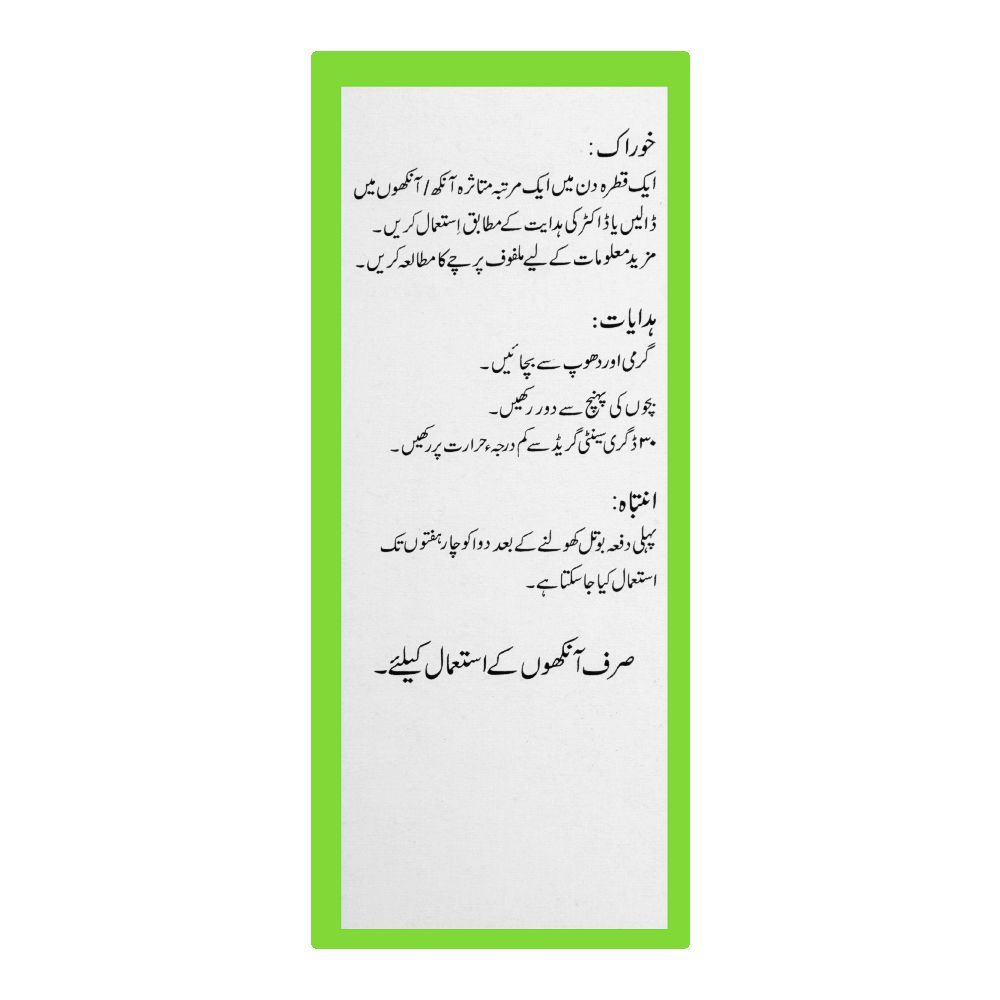 خوراک :
ایک قطرہ دن میں ایک مرتبہ متاثرہ آنکھ / آنکھوں میں
ڈالیں یا ڈاکٹر کی ہدایت کے مطابق اِستعمال کریں ۔
مزید معلومات کے لیے ملفوف پرچے کا مطالعہ کریں ۔
ہدایات :
گرمی اور دھوپ سے بچائیں ۔
بچوں کی پہنچ سے دور رکھیں ۔
۳۰ ڈگری سینٹی گریڈ سے کم درجہء حرارت پر رکھیں ۔
انتباہ :
پہلی دفعہ بوتل کھولنے کے بعد دوا کو چار ہفتوں تک
استعمال کیا جاسکتا ہے ۔
صرف آنکھوں کے استعمال کیلئے ۔